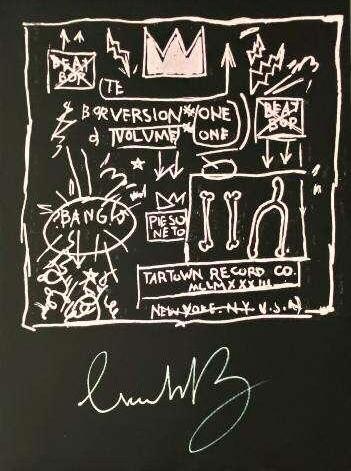 BEAT
BOP
(TE
BOP VERSION */ONE
VOLUME ONE
BEAT
BOP
BANG!
PIESO
NETO
TARTOWN RECORD CO.
MCLMXXXIII
NEW YORK. N.Y U.S.A)